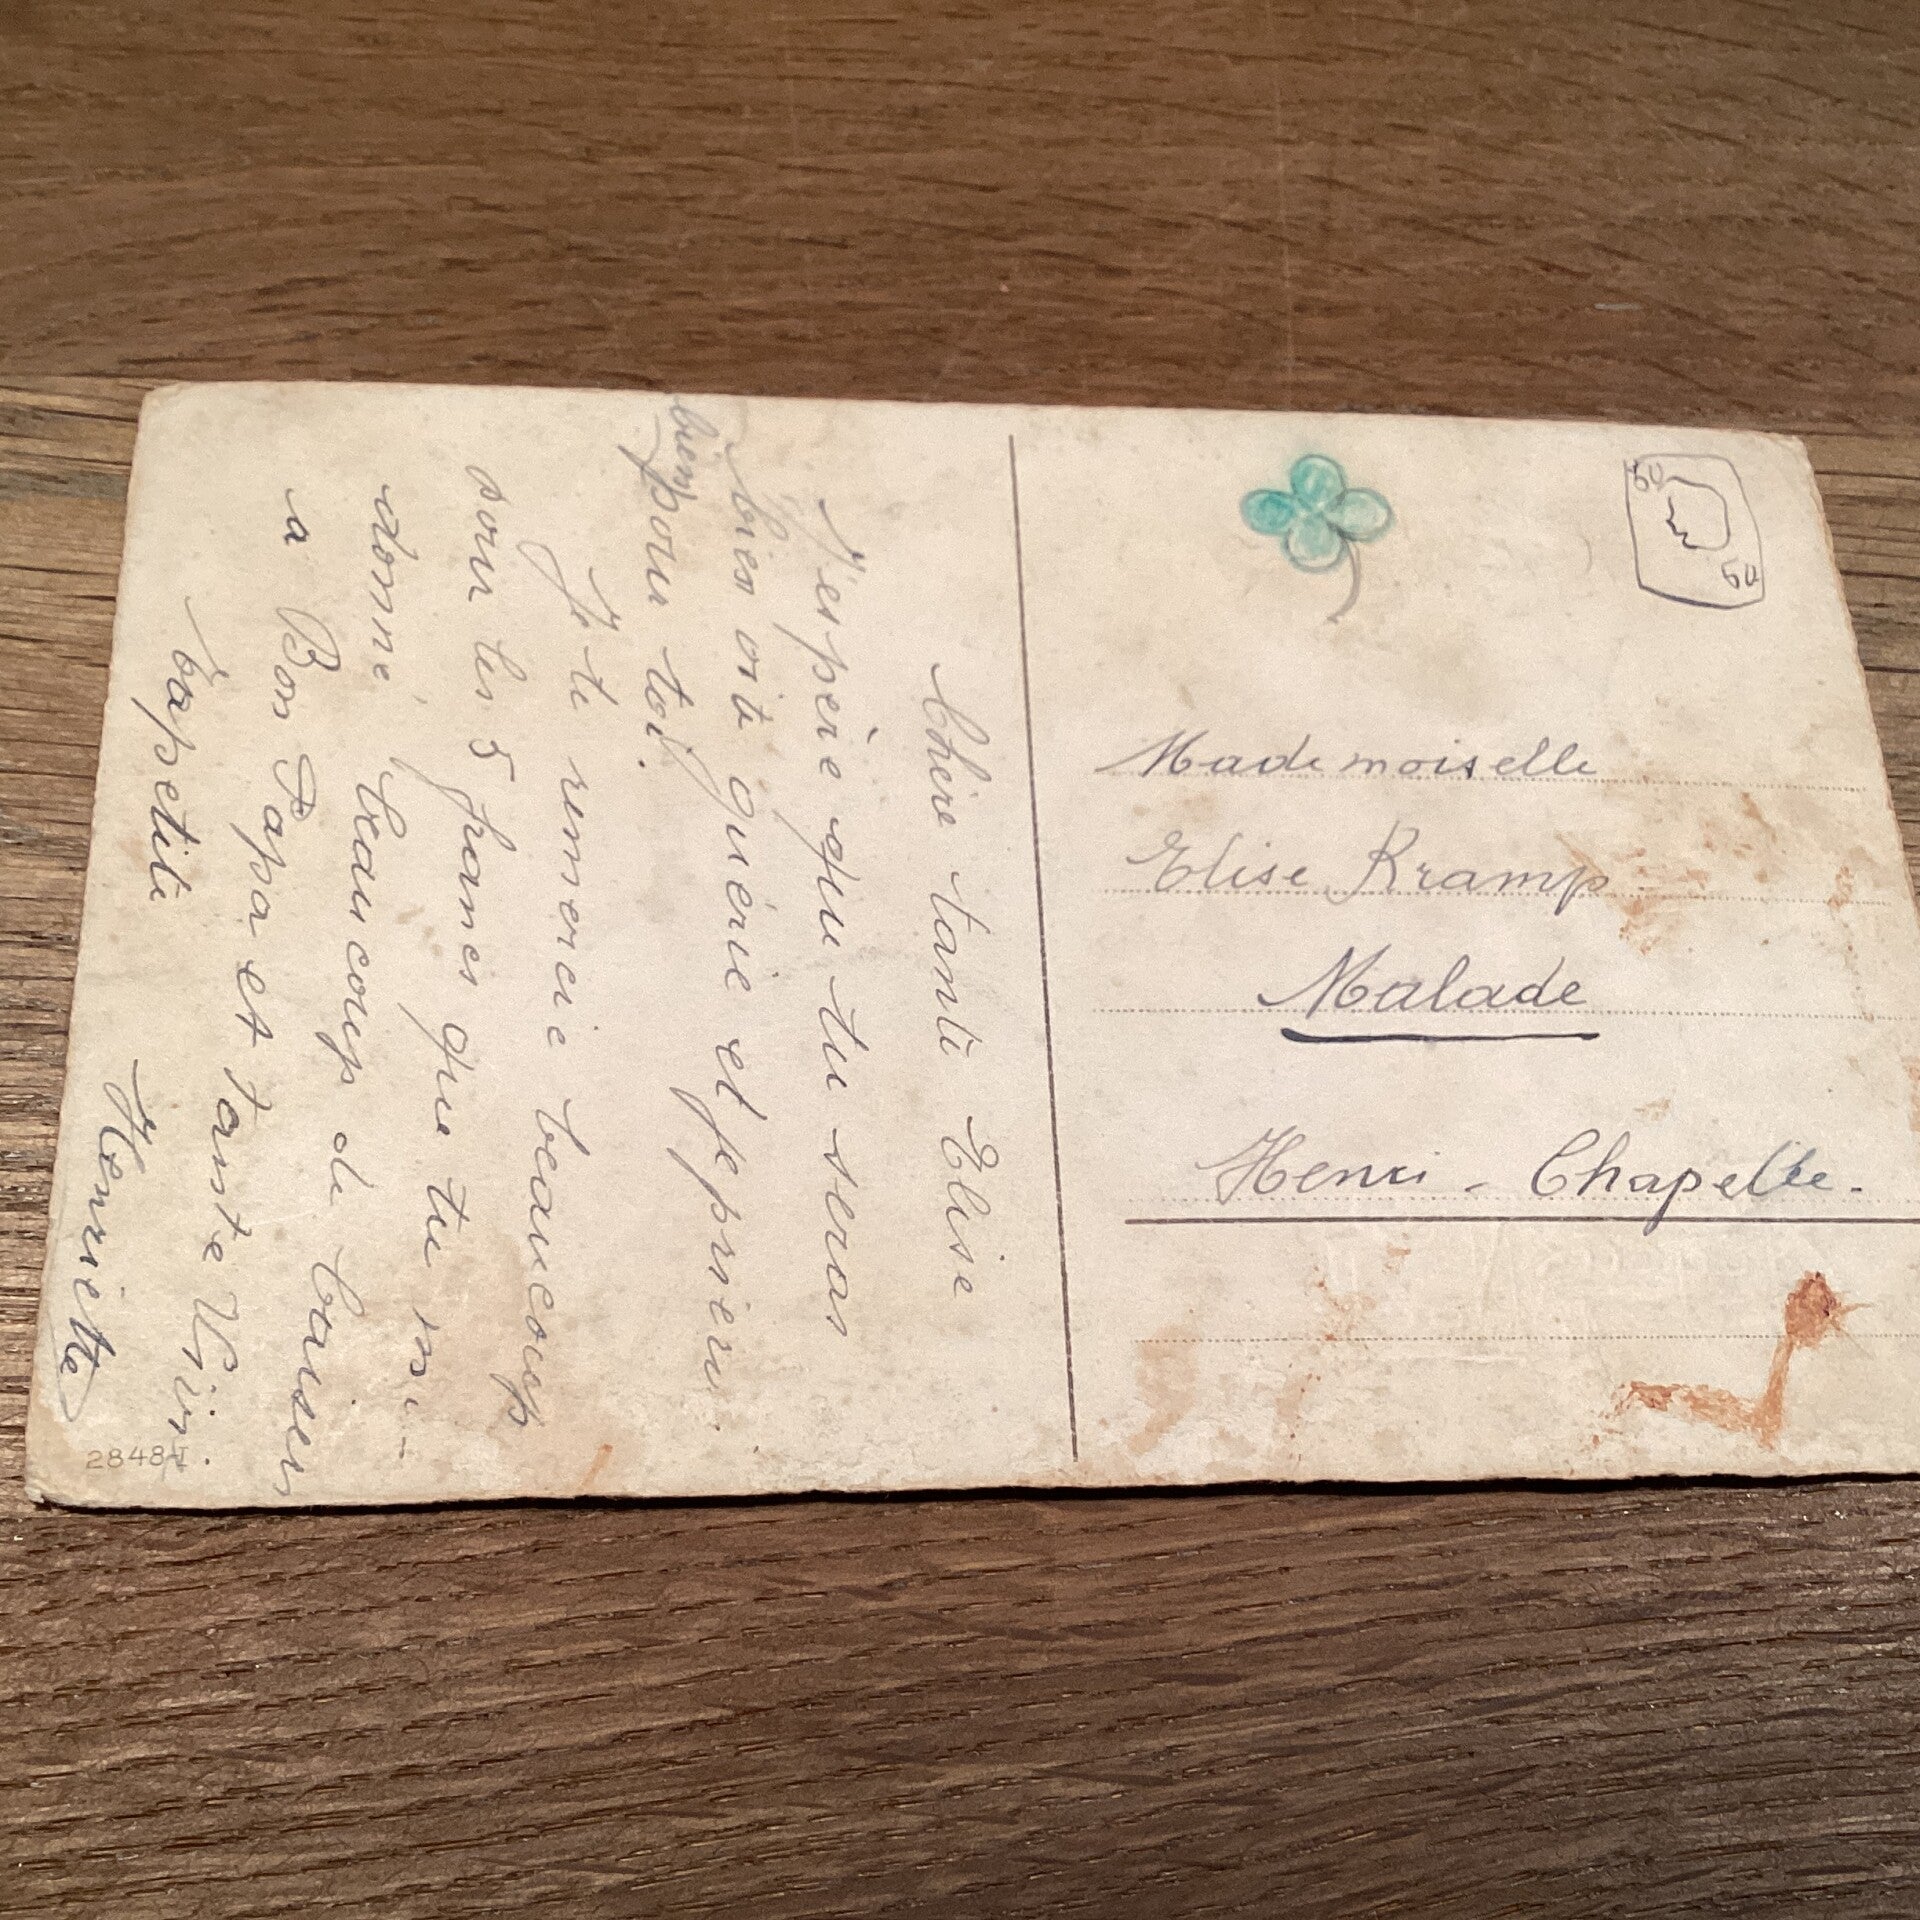 Chère tante Elise
J'espère que tu seras
bien vite guérie et je prierai
bien pour toi.
Je te remercie beaucoup
pour les 5 francs que tu m'
donné, beaucoup de baisers
a Bon Papa et tante Vir.
ta petite
Henriette
28484-I.
50
50
Mademoiselle
Elise Kramp
Malade
Henri-Chapelle.